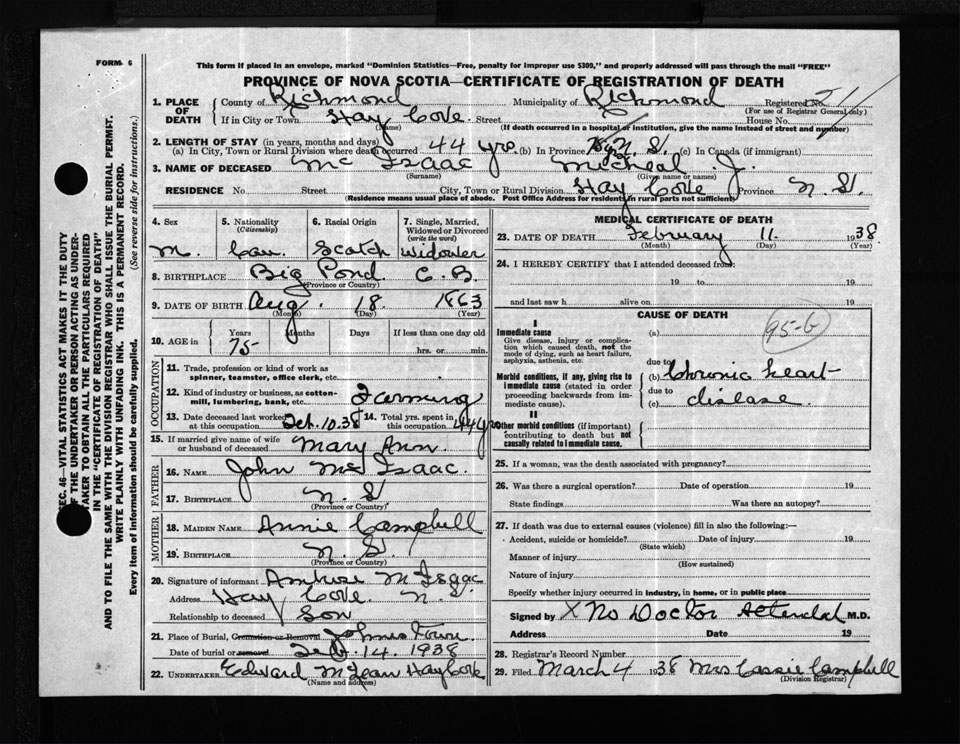 FORM 6
This form if placed in an envelope, marked "Dominion Statistics—Free, penalty for improper use $300," and properly addressed will pass through the mail "FREE"
PROVINCE OF NOVA SCOTIA—CERTIFICATE OF REGISTRATION OF DEATH
1. PLACE OF DEATH
County of Richmond Municipality of Richmond Registered No.
(For use of Registrar General only)
If in City or Town Hay Cove Street House No.
(Name) (If death occurred in a hospital or institution, give the name instead of street and number)
2. LENGTH OF STAY (in years, months and days)
(a) In City, Town or Rural Division where death occurred 44 yrs. (b) In Province N. S. (c) In Canada (if immigrant)
3. NAME OF DECEASED Mc Isaac Micheal J.
(Surname) (Given name or names)
RESIDENCE No. Street City, Town or Rural Division Hay Cove Province N. S.
(Residence means usual place of abode. Post Office Address for residents in rural parts not sufficient)
4. Sex 5. Nationality (Citizenship) 6. Racial Origin 7. Single, Married, Widowed or Divorced (write the word)
M. Can. Scotch Widower
8. BIRTHPLACE Big Pond. C. B.
(Province or Country)
9. DATE OF BIRTH Aug. 18 1863
(Month) (Day) (Year)
10. AGE in Years Months Days If less than one day old
75 hrs. or min.
OCCUPATION
11. Trade, profession or kind of work as spinner, teamster, office clerk, etc.
12. Kind of industry or business, as cotton-mill, lumbering, bank, etc. Farming
13. Date deceased last worked at this occupation Feb. 10. 38 14. Total yrs. spent in this occupation 44 y
15. If married give name of wife or husband of deceased Mary Ann.
FATHER
16. NAME John Mc Isaac.
17. BIRTHPLACE N. S.
(Province or Country)
MOTHER
18. MAIDEN NAME Annie Campbell
19. BIRTHPLACE N. S.
(Province or Country)
20. Signature of informant Ambrose McIsaac
Address Hay Cove. N. S.
Relationship to deceased Son
21. Place of Burial, Cremation or Removal Johnstown.
Date of burial or removal Feb. 14. 1938
22. UNDERTAKER Edward McLean Hay Cove
(Name and address)
MEDICAL CERTIFICATE OF DEATH
23. DATE OF DEATH February 11. 1938.
(Month) (Day) (Year)
24. I HEREBY CERTIFY that I attended deceased from:
19 to 19
and last saw h alive on 19
CAUSE OF DEATH
I
Immediate cause
Give disease, injury or complication which caused death, not the mode of dying, such as heart failure, asphyxia, asthenia, etc.
(a) 95-b
due to
Morbid conditions, if any, giving rise to immediate cause (stated in order proceeding backwards from immediate cause).
(b) Chronic heart
due to
(c) disease.
II
Other morbid conditions (if important) contributing to death but not causally related to immediate cause.
25. If a woman, was the death associated with pregnancy?
26. Was there a surgical operation? Date of operation 19
State findings Was there an autopsy?
27. If death was due to external causes (violence) fill in also the following:—
Accident, suicide or homicide? Date of injury 19
(State which)
Manner of injury
(How sustained)
Nature of injury
Specify whether injury occurred in industry, in home, or in public place
Signed by X No Doctor Attended M.D.
Address Date 19
28. Registrar's Record Number
29. Filed March 4 1938 Mrs Cassie Campbell
(Division Registrar)
SEC. 46—VITAL STATISTICS ACT MAKES IT THE DUTY
OF THE UNDERTAKER OR PERSON ACTING AS UNDER-
TAKER TO OBTAIN ALL THE PARTICULARS REQUIRED
IN THE "CERTIFICATE OF REGISTRATION OF DEATH"
AND TO FILE THE SAME WITH THE DIVISION REGISTRAR WHO SHALL ISSUE THE BURIAL PERMIT.
WRITE PLAINLY WITH UNFADING INK. THIS IS A PERMANENT RECORD.
Every item of information should be carefully supplied. (See reverse side for instructions.)